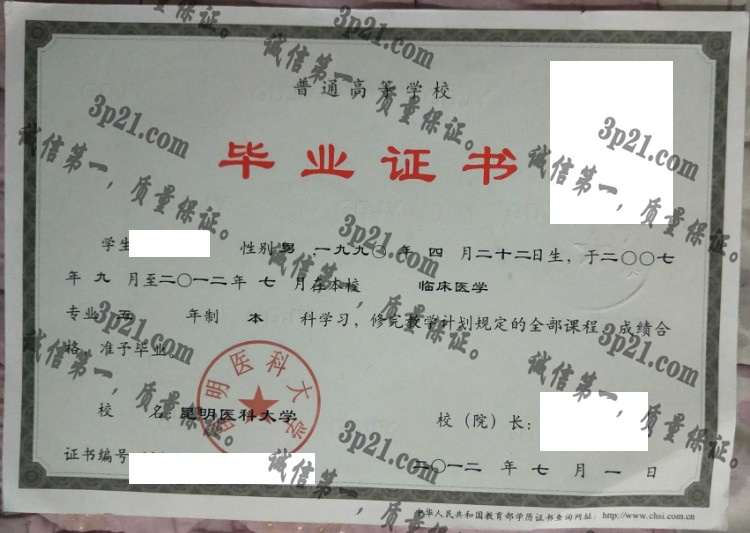 普通高等学校
毕业证书
学生 性别 男 一九九〇年 四 月二十二日生，于二〇〇七
年 九 月至二〇一二年 七 月在本校 临床医学
专业 五 年制 本 科学习，修完教学计划规定的全部课程，成绩合
格，准予毕业。
昆明医科大学
校 名：昆明医科大学 校（院）长：
证书编号
二〇一二 年 七 月 一 日
中华人民共和国教育部学历证书查询网址：http://www.chsi.com.cn
3p21.com
诚信第一，质量保证。
3p21.com
诚信第一，质量保证。
3p21.com
诚信第一，质量保证。
3p21.com
诚信第一，质量保证。
3p21.com
诚信第一，质量保证。
3p21.com
诚信第一，质量保证。
3p21.com
诚信第一，质量保证。